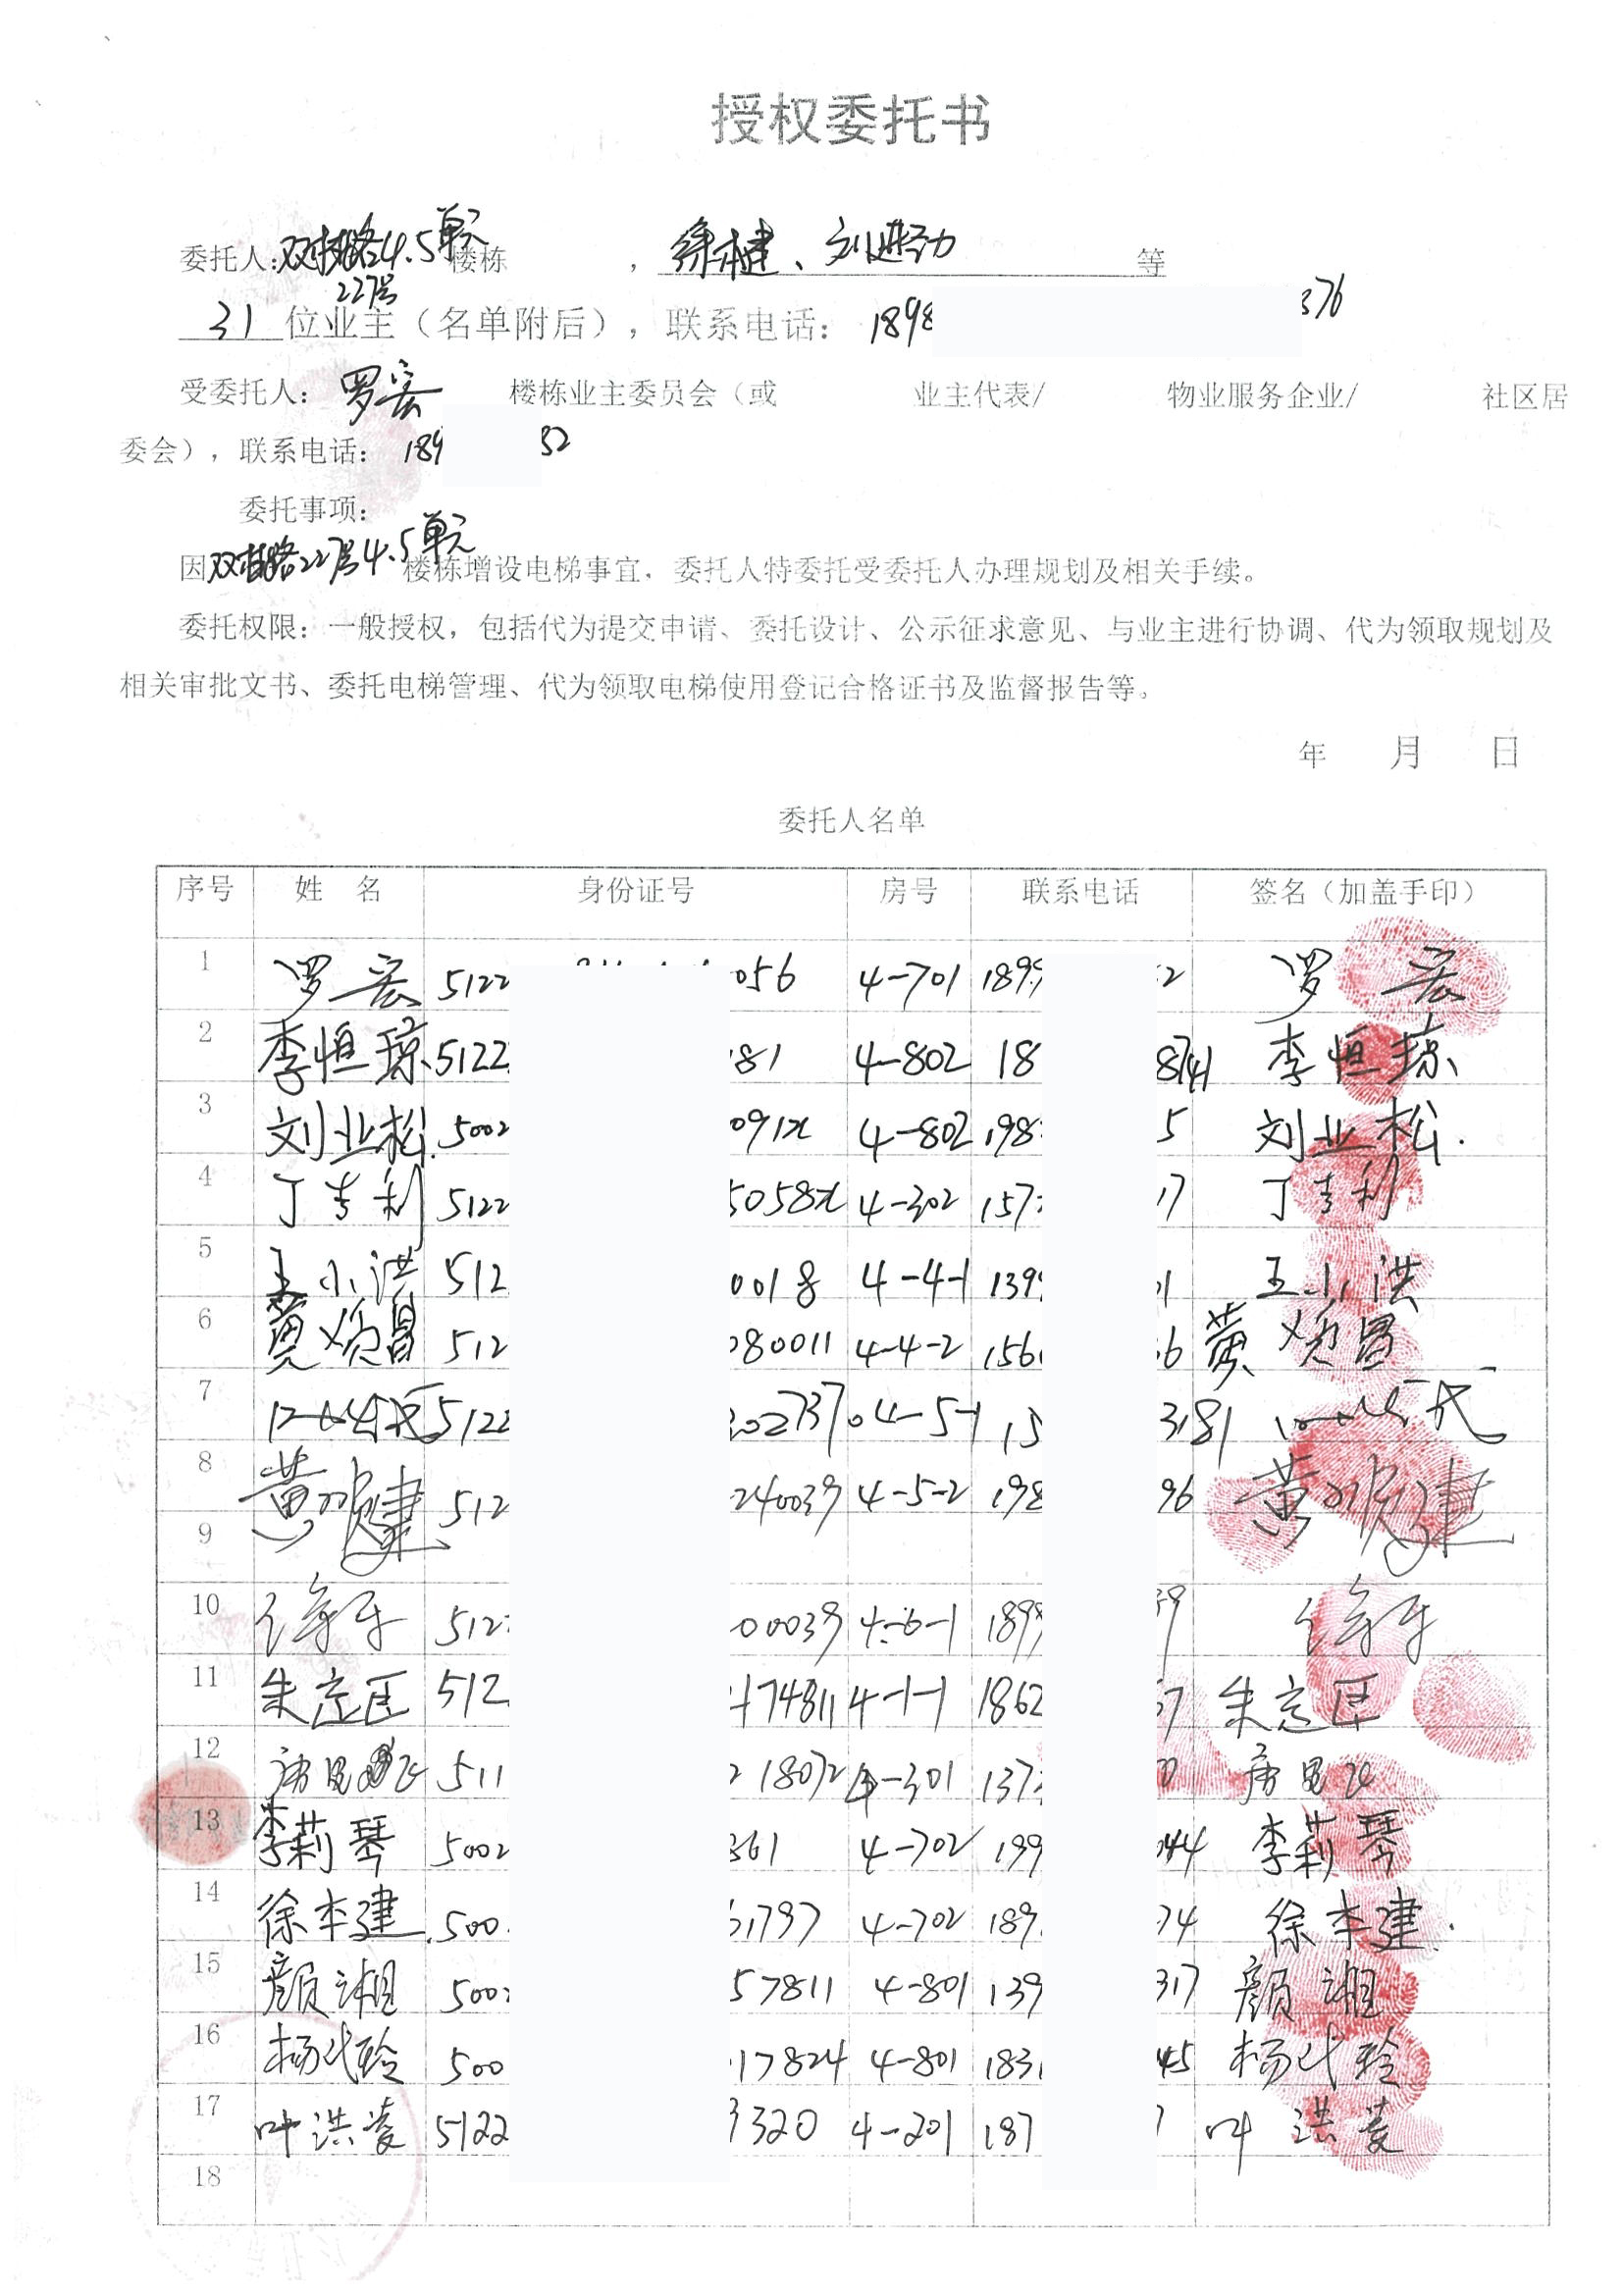 授权委托书
委托人：双桂路4.5单元楼栋，徐本建、刘进劲等
227号
31位业主（名单附后），联系电话：1898 376
受委托人：罗宏 楼栋业主委员会（或 业主代表/ 物业服务企业/ 社区居
委会），联系电话：189 32
委托事项：
因双桂路227号4.5单元楼栋增设电梯事宜，委托人特委托受委托人办理规划及相关手续。
委托权限：一般授权，包括代为提交申请、委托设计、公示征求意见、与业主进行协调、代为领取规划及
相关审批文书、委托电梯管理、代为领取电梯使用登记合格证书及监督报告等。
年 月 日
委托人名单
序号 姓 名 身份证号 房号 联系电话 签名（加盖手印）
1 罗宏 5122 056 4-701 1899 2 罗宏
2 李恒琼 5122 81 4-802 18 8741 李恒琼
3 刘业松 5002 091x 4-802 198 5 刘业松
4 丁吉利 5122 5058x 4-302 157 17 丁吉利
5 王小洪 512 0018 4-4-1 139 01 王小洪
6 黄焕昌 512 080011 4-4-2 156 6 黄焕昌
7 5122 4-5-1 15 3181
8 黄 建 512 240039 4-5-2 198 96 黄 建
9
10 512 00039 4-6-1 1899 39
11 朱定匡 512 174811 4-1-1 1862 57 朱定匡
12 511 218072 4-301 137 0
13 李莉琴 5002 361 4-702 199 044 李莉琴
14 徐本建 500 1797 4-702 189 74 徐本建
15 颜湘 500 57811 4-801 139 317 颜湘
16 杨代玲 500 17824 4-801 183 45 杨代玲
17 叶洪菱 5122 3320 4-201 187 叶洪菱
18